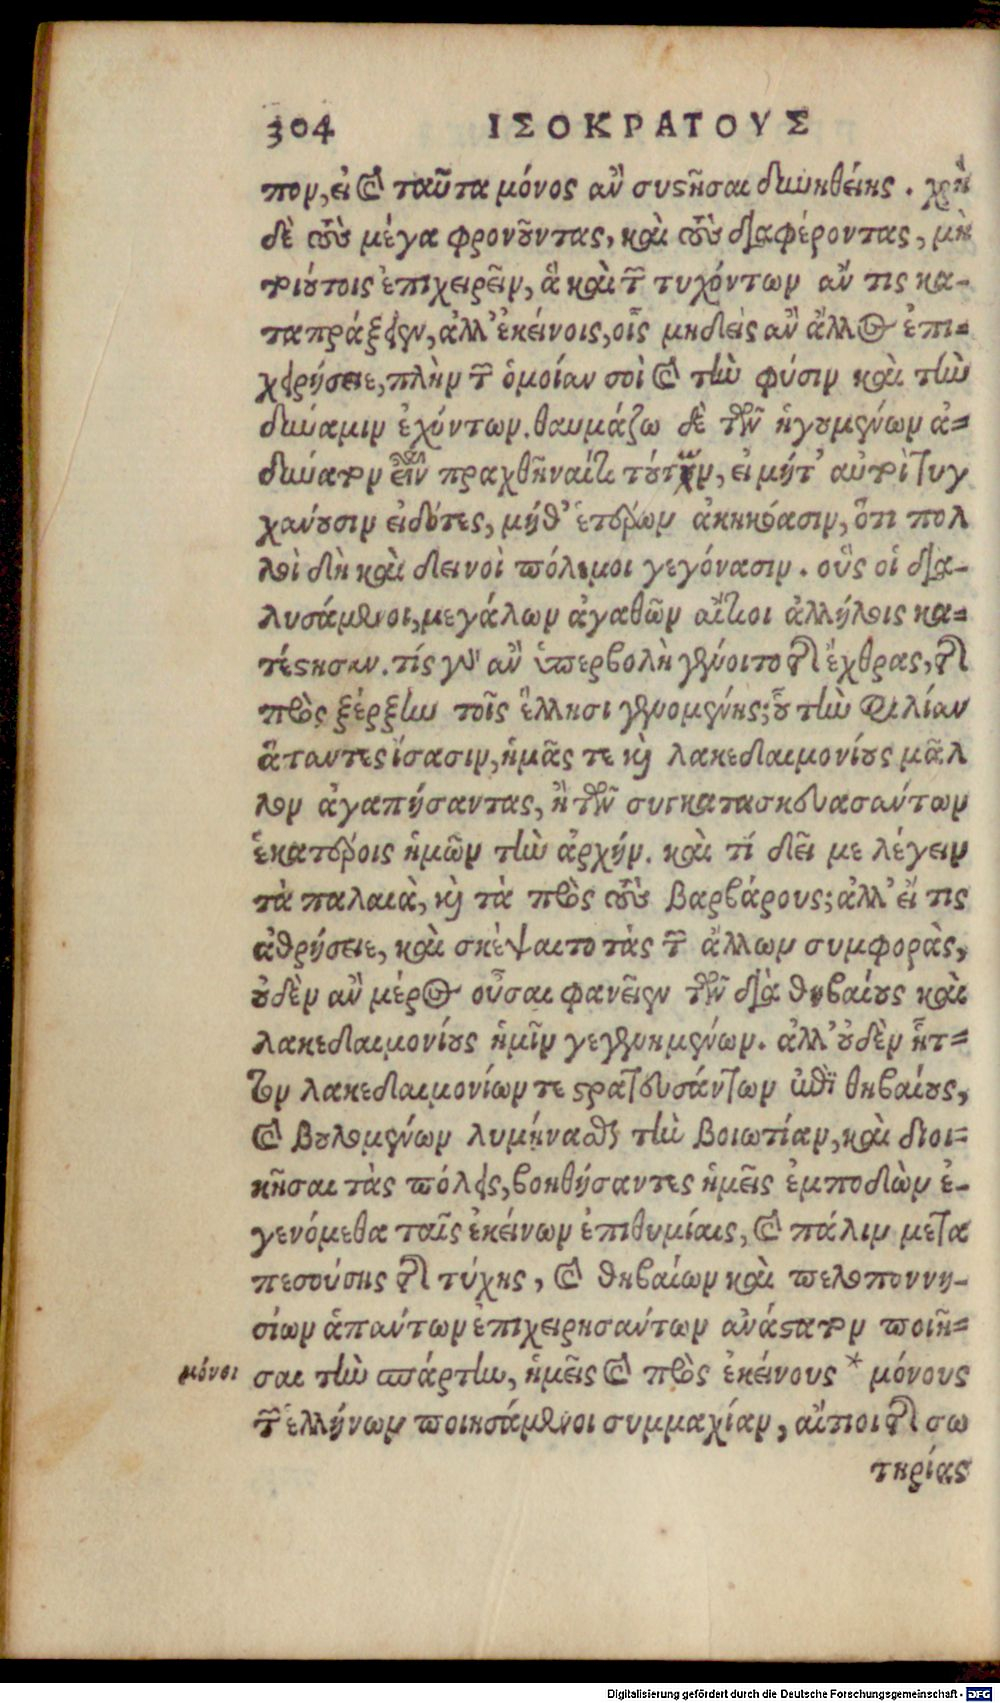 304 ΙΣΟΚΡΑΤΟΥΣ
πον, εἰ καὶ ταῦτα μόνος ἂν συστῆσαι δυνηθείης. χρὴ
δὲ τοὺς μέγα φρονοῦντας, καὶ τοὺς διαφέροντας, μὴ
τοιούτοις ἐπιχειρεῖν, ἃ καὶ τῶν τυχόντων ἄν τις κα-
ταπράξειεν, ἀλλ' ἐκείνοις, οἷς μηδεὶς ἂν ἄλλος ἐπι-
χειρήσειε, πλὴν τῶν ὁμοίαν σοὶ καὶ τὴν φύσιν καὶ τὴν
δύναμιν ἐχόντων. θαυμάζω δὲ τῶν ἡγουμένων ἀ-
δύνατον εἶναι πραχθῆναί τι τούτων, εἰ μήτ' αὐτοὶ τυγ
χάνουσιν εἰδότες, μήθ' ἑτέρων ἀκηκόασιν, ὅτι πολ
λοὶ δὴ καὶ δεινοὶ πόλεμοι γεγόνασιν. οὓς οἱ δια-
λυσάμενοι, μεγάλων ἀγαθῶν αἴτιοι ἀλλήλοις κα-
τέστησαν. τίς γὰρ ἂν ὑπερβολὴ γένοιτο τῆς ἔχθρας, τῆς
πρὸς ξέρξην τοῖς ἕλλησι γενομένης; οὗ τὴν φιλίαν
ἅπαντες ἴσασιν, ἡμᾶς τε καὶ λακεδαιμονίους μᾶλ
λον ἀγαπήσαντας, ἢ τῶν συγκατασκευασάντων
ἑκατέροις ἡμῶν τὴν ἀρχήν. καὶ τί δεῖ με λέγειν
τὰ παλαιὰ, καὶ τὰ πρὸς τοὺς βαρβάρους; ἀλλ' εἴ τις
ἀθρήσειε, καὶ σκέψαιτο τὰς τῶν ἄλλων συμφορὰς,
οὐδὲν ἂν μέρος οὖσαι φανεῖεν τῶν διὰ θηβαίους καὶ
λακεδαιμονίους ἡμῖν γεγενημένων. ἀλλ' οὐδὲν ἧτ-
τον λακεδαιμονίων τε στρατευσάντων ἐπὶ θηβαίους,
καὶ βουλομένων λυμήνασθαι τὴν βοιωτίαν, καὶ διοι-
κῆσαι τὰς πόλεις, βοηθήσαντες ἡμεῖς ἐμποδὼν ἐ-
γενόμεθα ταῖς ἐκείνων ἐπιθυμίαις, καὶ πάλιν μετα
πεσούσης τῆς τύχης, καὶ θηβαίων καὶ πελοποννη-
σίων ἁπάντων ἐπιχειρησάντων ἀνάστατον ποιῆ-
μόνοι σαι τὴν σπάρτην, ἡμεῖς καὶ πρὸς ἐκείνους * μόνους
τῶν ἑλλήνων ποιησάμενοι συμμαχίαν, αἴτιοι τῆς σω
τηρίας
Digitalisierung gefördert durch die Deutsche Forschungsgemeinschaft - DFG